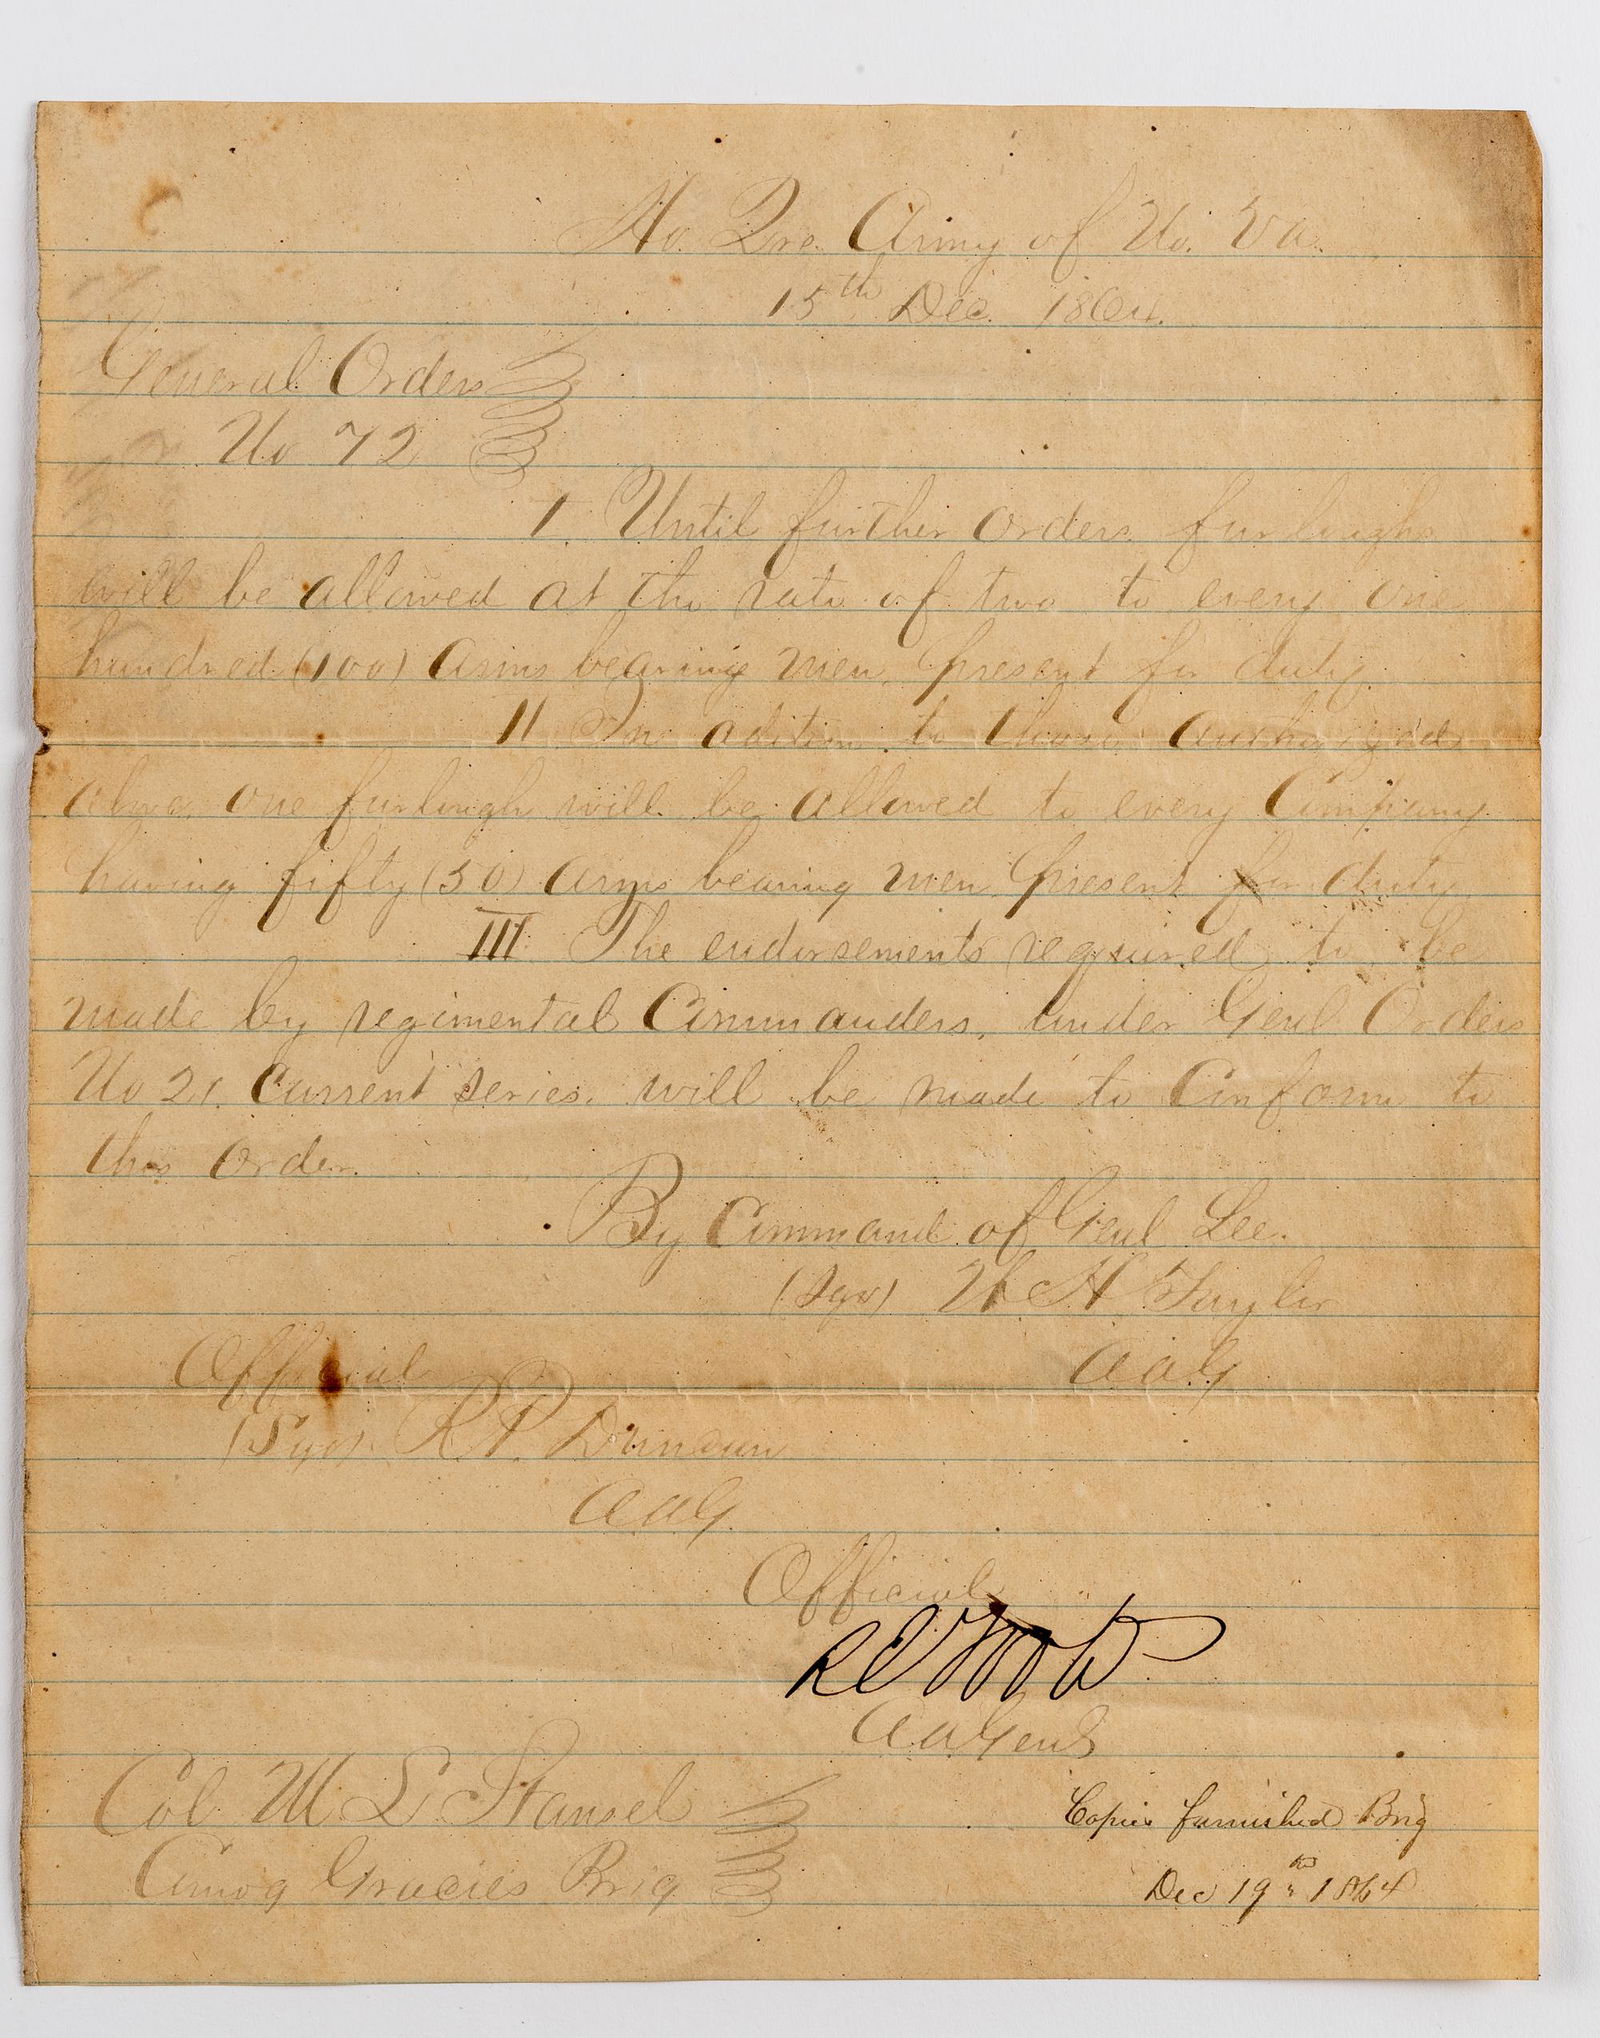 Hd. Qrs. Army of No. Va.
15th Dec. 1864.
General Orders
No 72
I. Until further orders furloughs
will be allowed at the rate of two to every one
hundred (100) arms bearing men, present for duty.
II In adition to those authorized
above one furlough will be allowed to every Company
having fifty (50) arms bearing men present for duty
III The endorsements required to be
made by regimental Commanders, under Genl Orders
No 21. Current series. will be made to Conform to
this order.
By Command of Genl Lee.
(Sgd) W H Taylor
AAG
Official
(Sgd) R.P. Duncan
AAG.
Official
AAGenl
Col M L Stansel
Comdg Gracies Brig
Copies furnished Brig
Dec 19th 1864